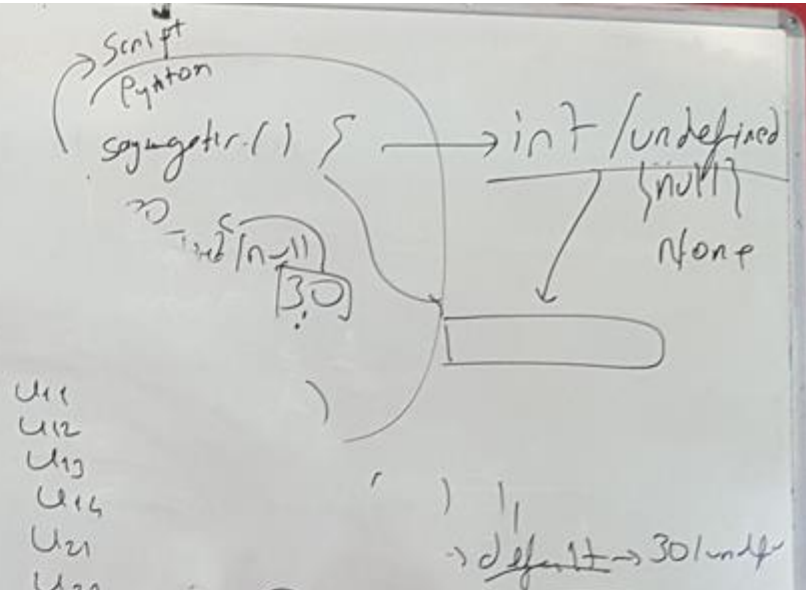 Script
Pyhton
sayıgetir() { → int /undefined
{null}
None
30
/null
30
U11
U12
U13
U14
U21
→ default → 30/undef